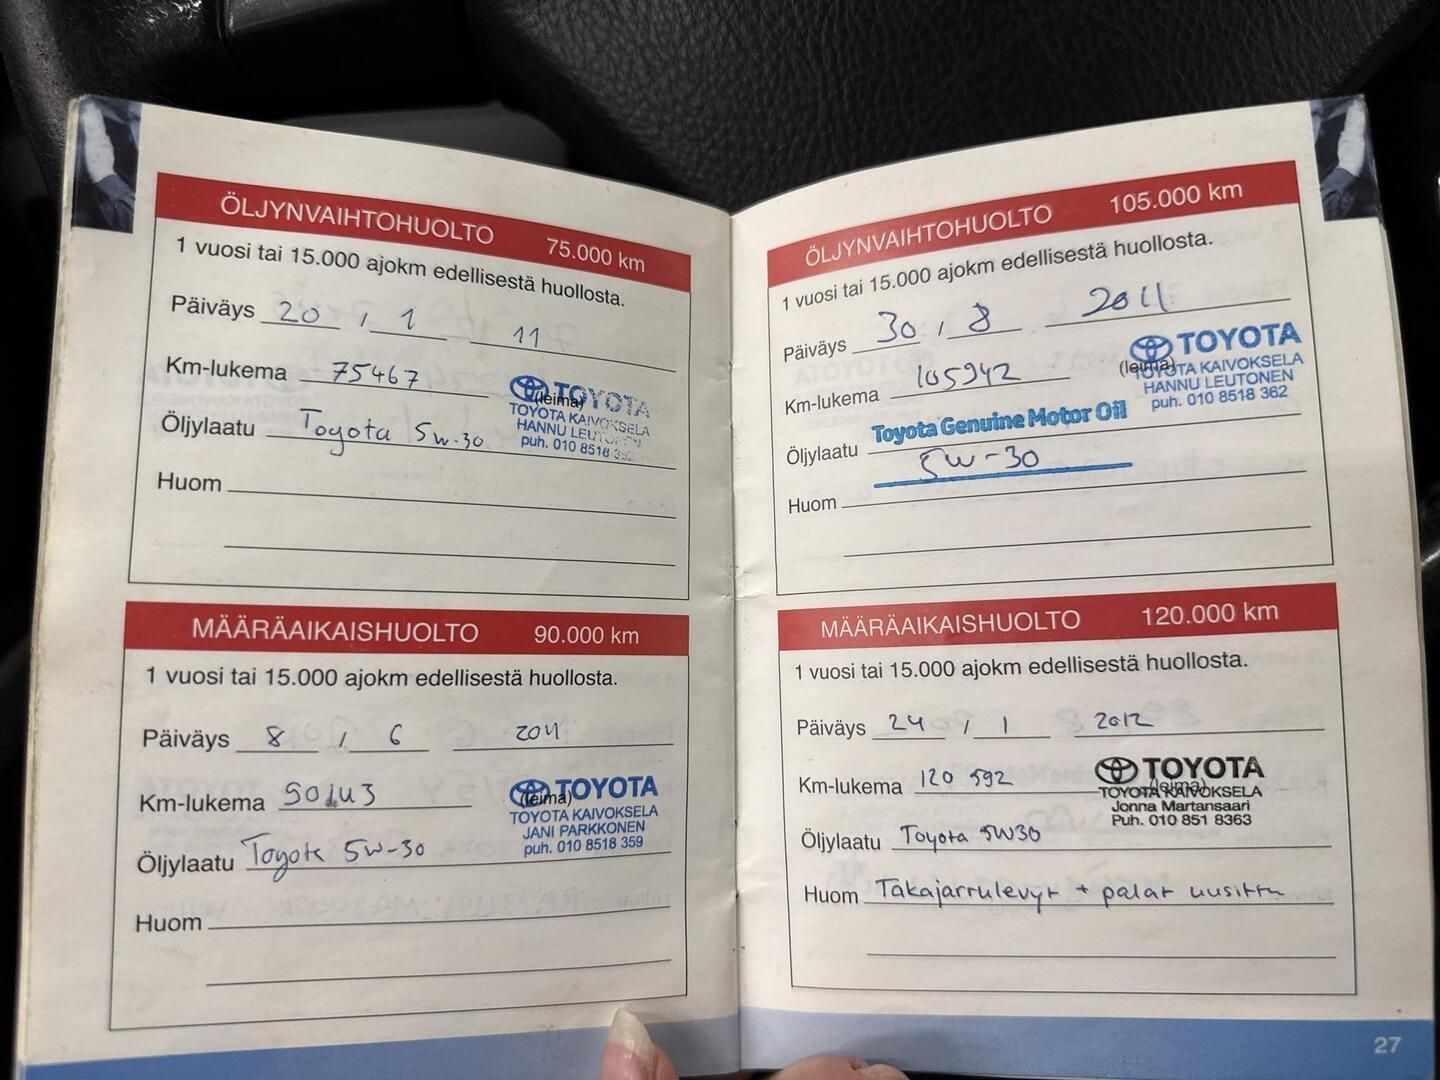 ÖLJYNVAIHTOHUOLTO 75.000 km
1 vuosi tai 15.000 ajokm edellisestä huollosta.
Päiväys 20 / 1 11
Km-lukema 75467
TOYOTA
(leima)
TOYOTA KAIVOKSELA
HANNU LEUTONEN
puh. 010 8518
Öljylaatu Toyota 5w-30
Huom
MÄÄRÄAIKAISHUOLTO 90.000 km
1 vuosi tai 15.000 ajokm edellisestä huollosta.
Päiväys 8 / 6 2011
Km-lukema
TOYOTA
(leima)
TOYOTA KAIVOKSELA
JANI PARKKONEN
puh. 010 8518 359
Öljylaatu Toyota 5w-30
Huom
ÖLJYNVAIHTOHUOLTO 105.000 km
1 vuosi tai 15.000 ajokm edellisestä huollosta.
Päiväys 30 / 8 2011
Km-lukema 105942
TOYOTA
(leima)
TOYOTA KAIVOKSELA
HANNU LEUTONEN
puh. 010 8518 362
Öljylaatu Toyota Genuine Motor Oil
5W-30
Huom
MÄÄRÄAIKAISHUOLTO 120.000 km
1 vuosi tai 15.000 ajokm edellisestä huollosta.
Päiväys 24 / 1 2012
Km-lukema 120 592
TOYOTA
(leima)
TOYOTA KAIVOKSELA
Jonna Martansaari
Puh. 010 851 8363
Öljylaatu Toyota 5W30
Huom Takajarrulevyt + palat uusittu
27